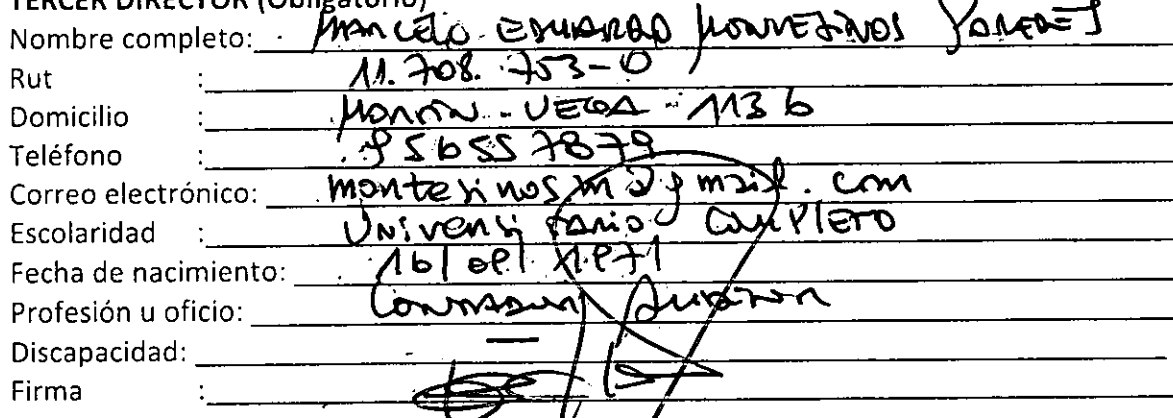 TERCER DIRECTOR (Obligatorio)
Nombre completo: MARCELO EDUARDO MONTESINOS PAREDES
Rut : 11.708.753-0
Domicilio : MARTIN VEGA 1136
Teléfono : 956557879
Correo electrónico: montesinosm@gmail.com
Escolaridad : UNIVERSITARIO COMPLETO
Fecha de nacimiento: 16/09/1.971
Profesión u oficio: CONTADOR AUDITOR
Discapacidad: —
Firma :